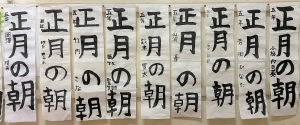 正月の朝
正月の朝
正月の朝
正月の朝
正月の朝
正月の朝
正月の朝
正月の朝
正月の朝